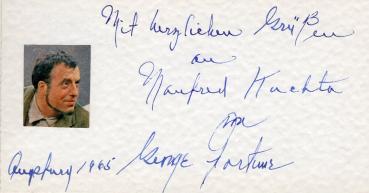 Mit herzlichen Grüßen
an
Manfred Kuchta
von
Augsburg 1965 George Fortune